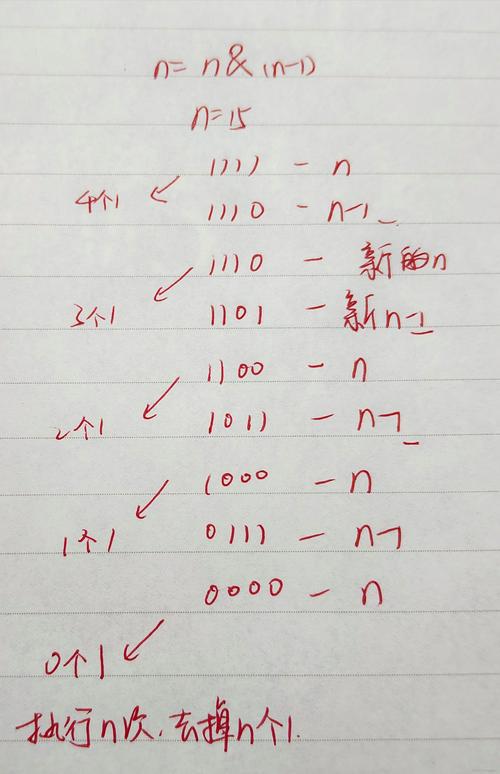 n = n & (n-1)
n=15
1111 - n
4个1
1110 - n-1
1110 - 新的n
3个1
1101 - 新n-1
1100 - n
2个1
1011 - n-1
1000 - n
1个1
0111 - n-1
0000 - n
0个1
执行n次,去掉n个1.